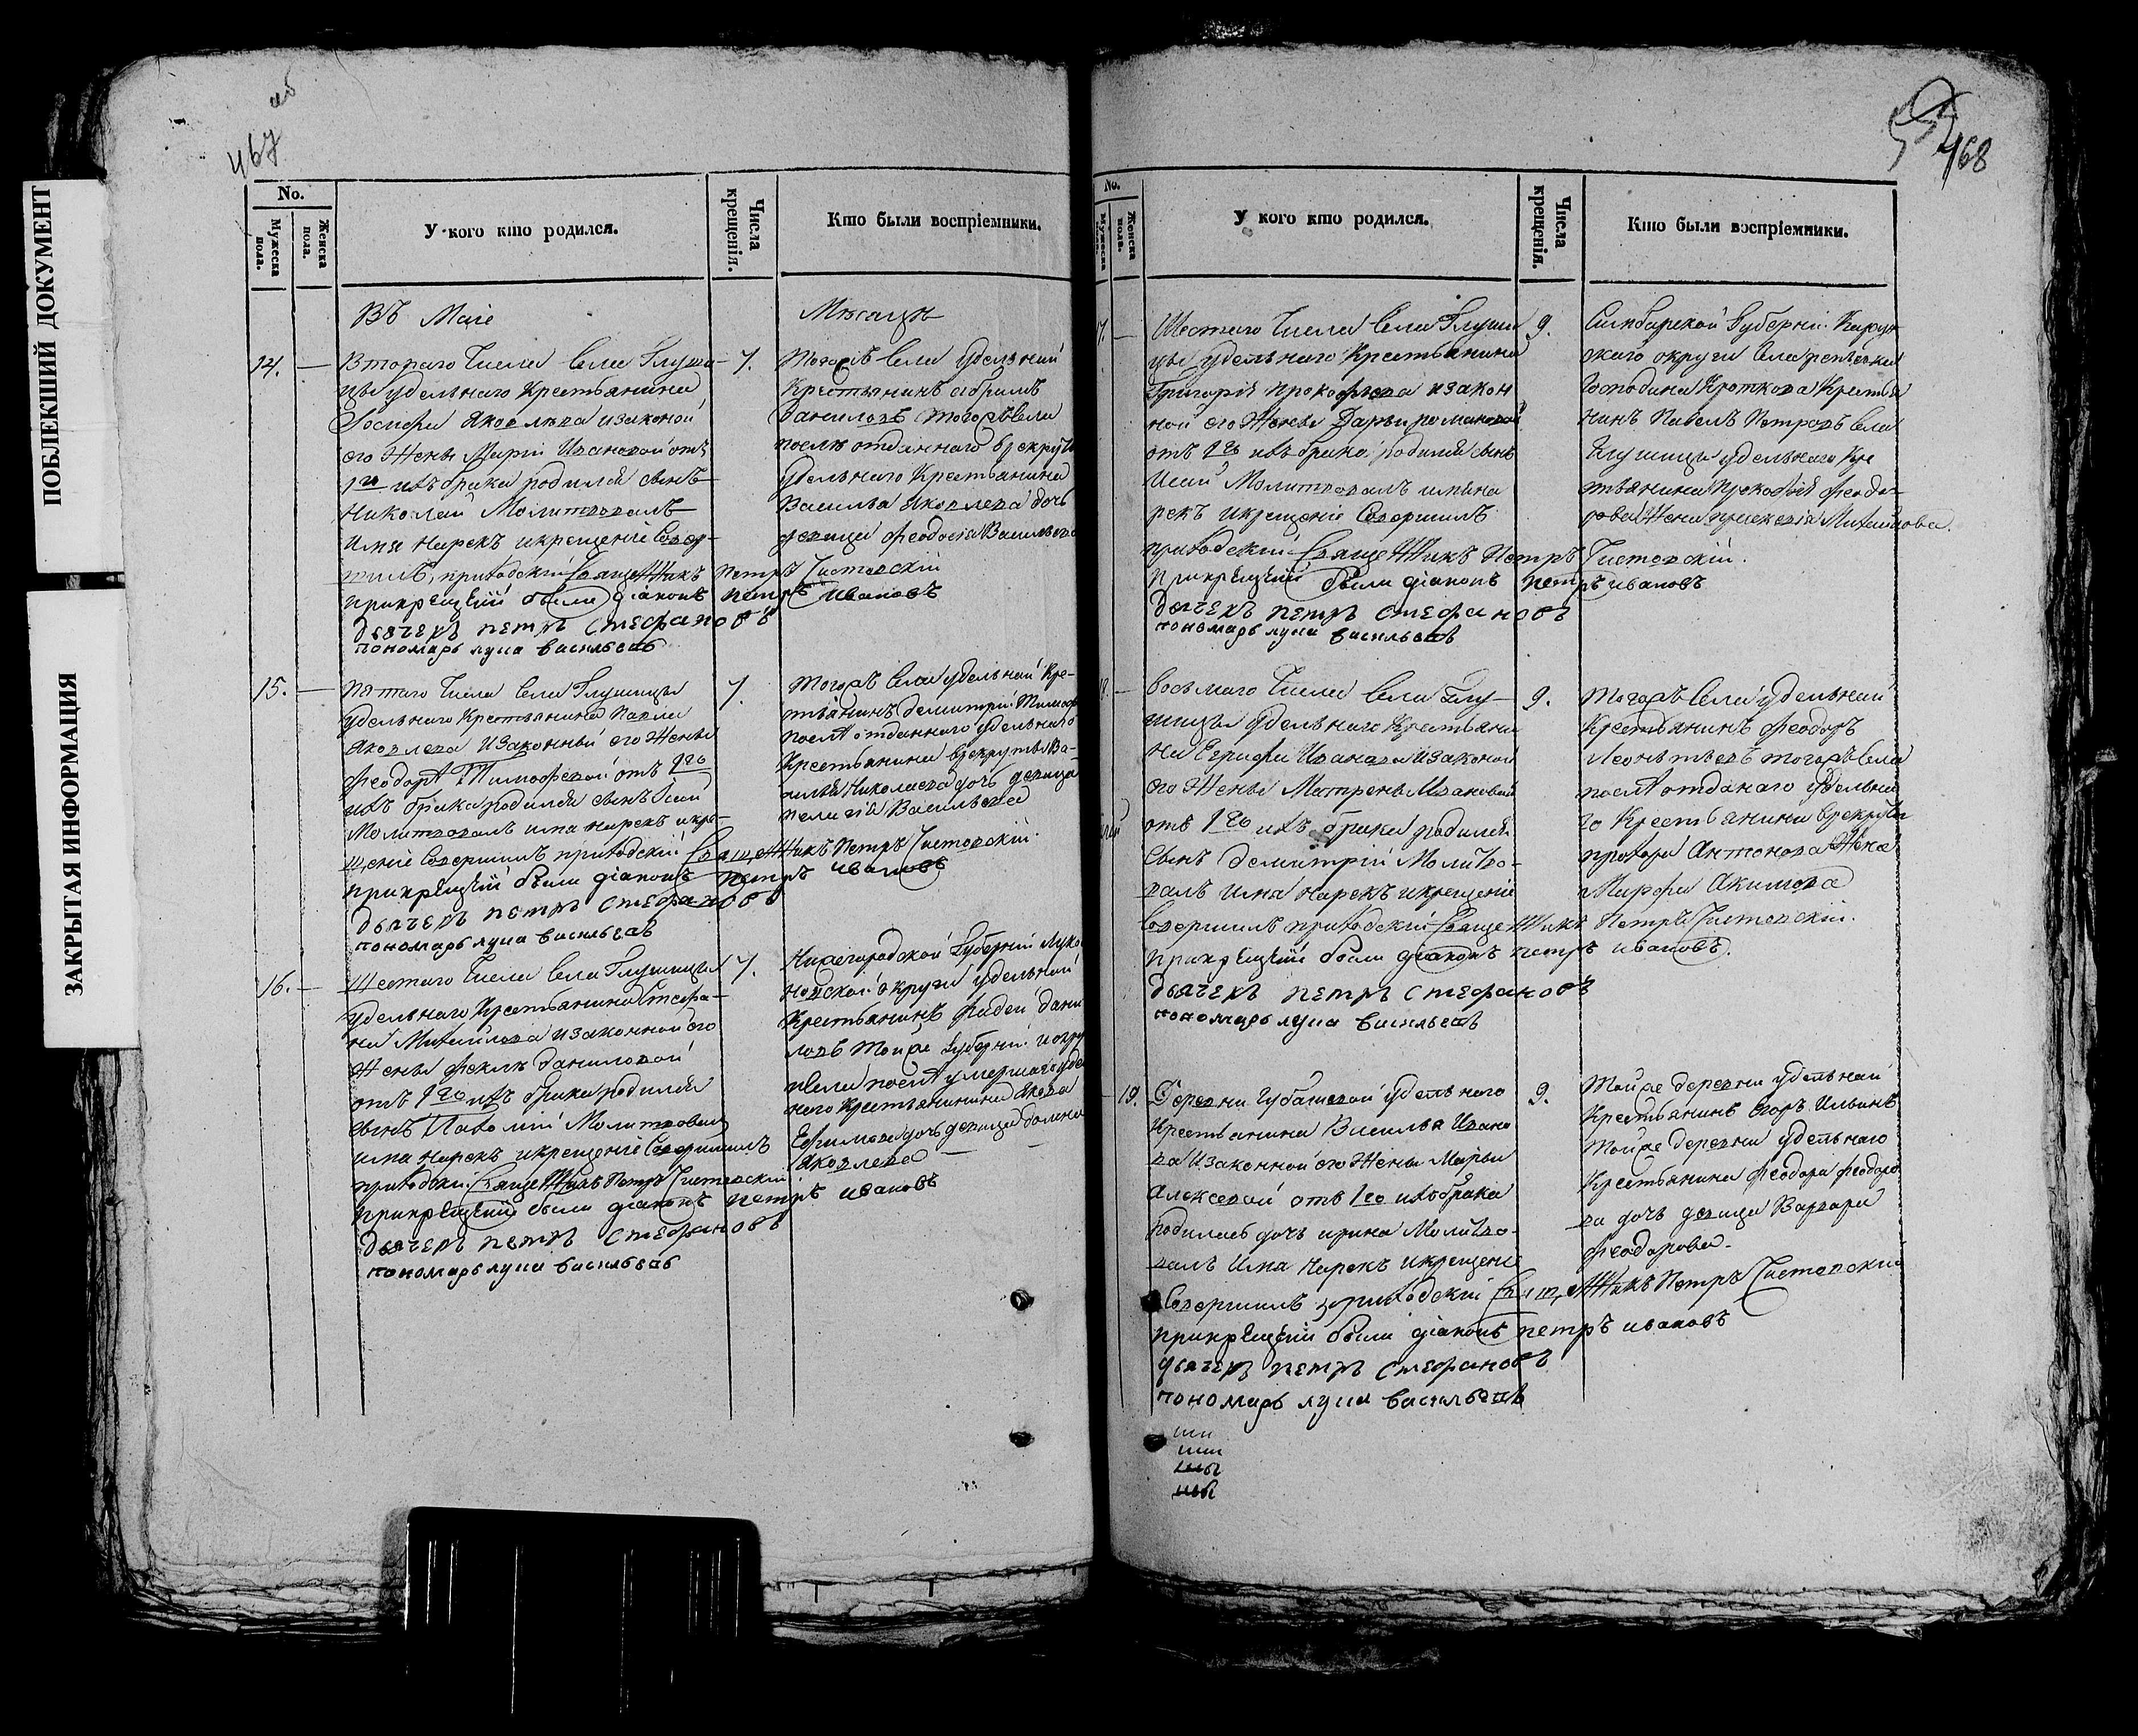 ПОБЛЕКШИЙ ДОКУМЕНТ
ЗАКРЫТАЯ ИНФОРМАЦИЯ
467
No.
Мужеска пола.
Женска пола.
У кого кто родился.
Числа крещенія.
Кто были воспріемники.
Въ Маіе
Месяце
14.
Втораго Числа Села Глуши-
цы удельнаго Крестьянина
Іосифа Яковлева изаконой
его Жены Маріи Ивановой отъ
1го ихъ брака родился сынъ
Николай Молитвовалъ
имя нарекъ икрещеніе Совер-
шилъ, приходскій Священникъ Петръ Гистовскій
прикрещеніи были діаконъ петръ ивановъ
дьячекъ петръ Стефановъ
пономарь лука васильевъ
7.
Тогожъ Села Удельный
Крестьянинъ
Даниловъ Тогожъ Села
после отданнаго врекруты
удельнаго Крестьянина
Василья Яковлева дочь
девица Феодосія Васильева
15.
пятаго Числа Села Глушицы
удельнаго Крестьянина Павла
Яковлева Изаконный его Жены
Феодоры Тимофевой отъ 1го
ихъ брака родился сынъ Ісай
Молитвовалъ имя нарекъ икре-
щеніе Совершилъ приходскій Священникъ Петръ Гистовскій.
прикрещеніи были діаконъ петръ ивановъ
дьячекъ петръ Стефановъ
пономарь лука васильевъ
7.
Тогожъ Села удельный Кре-
тьянинъ Демитрій
после отданнаго удельнаго
Крестьянина врекруты Ва-
силья Николаева дочь девица
пелагія Васильева
16.
Шестаго Числа Села Глушицы
удельнаго Крестьянина Стефа-
на Михайлова изаконной его
Жены Феклы Даниловой
отъ 1го ихъ брака родился
сынъ Молитвовалъ
имя нарекъ икрещеніе Совершилъ
приходскі Священникъ Петръ Гистовскій
прикрещеніи были діаконъ петръ ивановъ
дьячекъ петръ Стефановъ
пономарь лука васильевъ
7.
Нижегородской Губерній Луко
новской округи удельной
Крестьянинъ Фадей Дани
ловъ Тойже Губерніи
после умершаго уде
наго Крестьянинина Якова
Ефимова дочь девица
Яковлева
468
No.
Мужеска
Женска пола.
У кого кто родился.
Числа крещенія.
Кто были воспріемники.
7.
Шестаго Числа Села Глуши
цы удельнаго Крестьянина
Григорія прокофьева изакон
ной его Жены Дарьи романовой
отъ 1го ихъ брака родился сынъ
Исай Молитвовалъ имя на
рекъ икрещеніе Совершилъ
приходскій Священникъ Петръ Гистовскій.
прикрещеніи были діаконъ петръ ивановъ
дьячекъ петръ Стефановъ
пономарь лука васильевъ
9.
Симбирской Губерніи Карсун
скаго округи Села
Господина Кроткова Крестья
нинъ Павелъ Петровъ Села
Глушицы удельнаго Кре
тьянина Прокофія Феодо-
рова Жена Михайлова.
8.
Восьмаго Числа Села Глу-
шицы удельнаго Крестьяни
на Иванова Изаконой
его Жены Матрены Ивановой
отъ 1го ихъ брака родился
Сынъ Демитрій Молитво-
валъ имя нарекъ икрещеніе
Совершилъ приходскій Священникъ Петръ Гистовскій.
прикрещеніи были діаконъ петръ ивановъ.
дьячекъ петръ Стефановъ
пономарь лука васильевъ
9.
Тогожъ Села удельный
Крестьянинъ Феодоръ
Леонтьевъ тогожъ Села
после отданаго Удельна
го Крестьянина врекруты
прохора Антонова Жена
Марфа Акимова
19.
Деревни Губашевой Удельнаго
Крестьянина Василья Ивано
ва Изаконной его Жены Марьи
Алексевой отъ 1го ихбрака
родилась дочь ирина Молитво-
валъ Имя Нарекъ икрещеніе
Совершилъ приходскій Священникъ Петръ Гистовскій
прикрещеніи были діаконъ петръ ивановъ
дьячекъ петръ Стефановъ
пономарь лука васильевъ
9.
Тойже деревни удельный
Крестьянинъ Егоръ Ильинъ
Тойже деревни удельнаго
Крестьянина Феодора Феодоро
ва дочь девица Варвара
Феодорова.